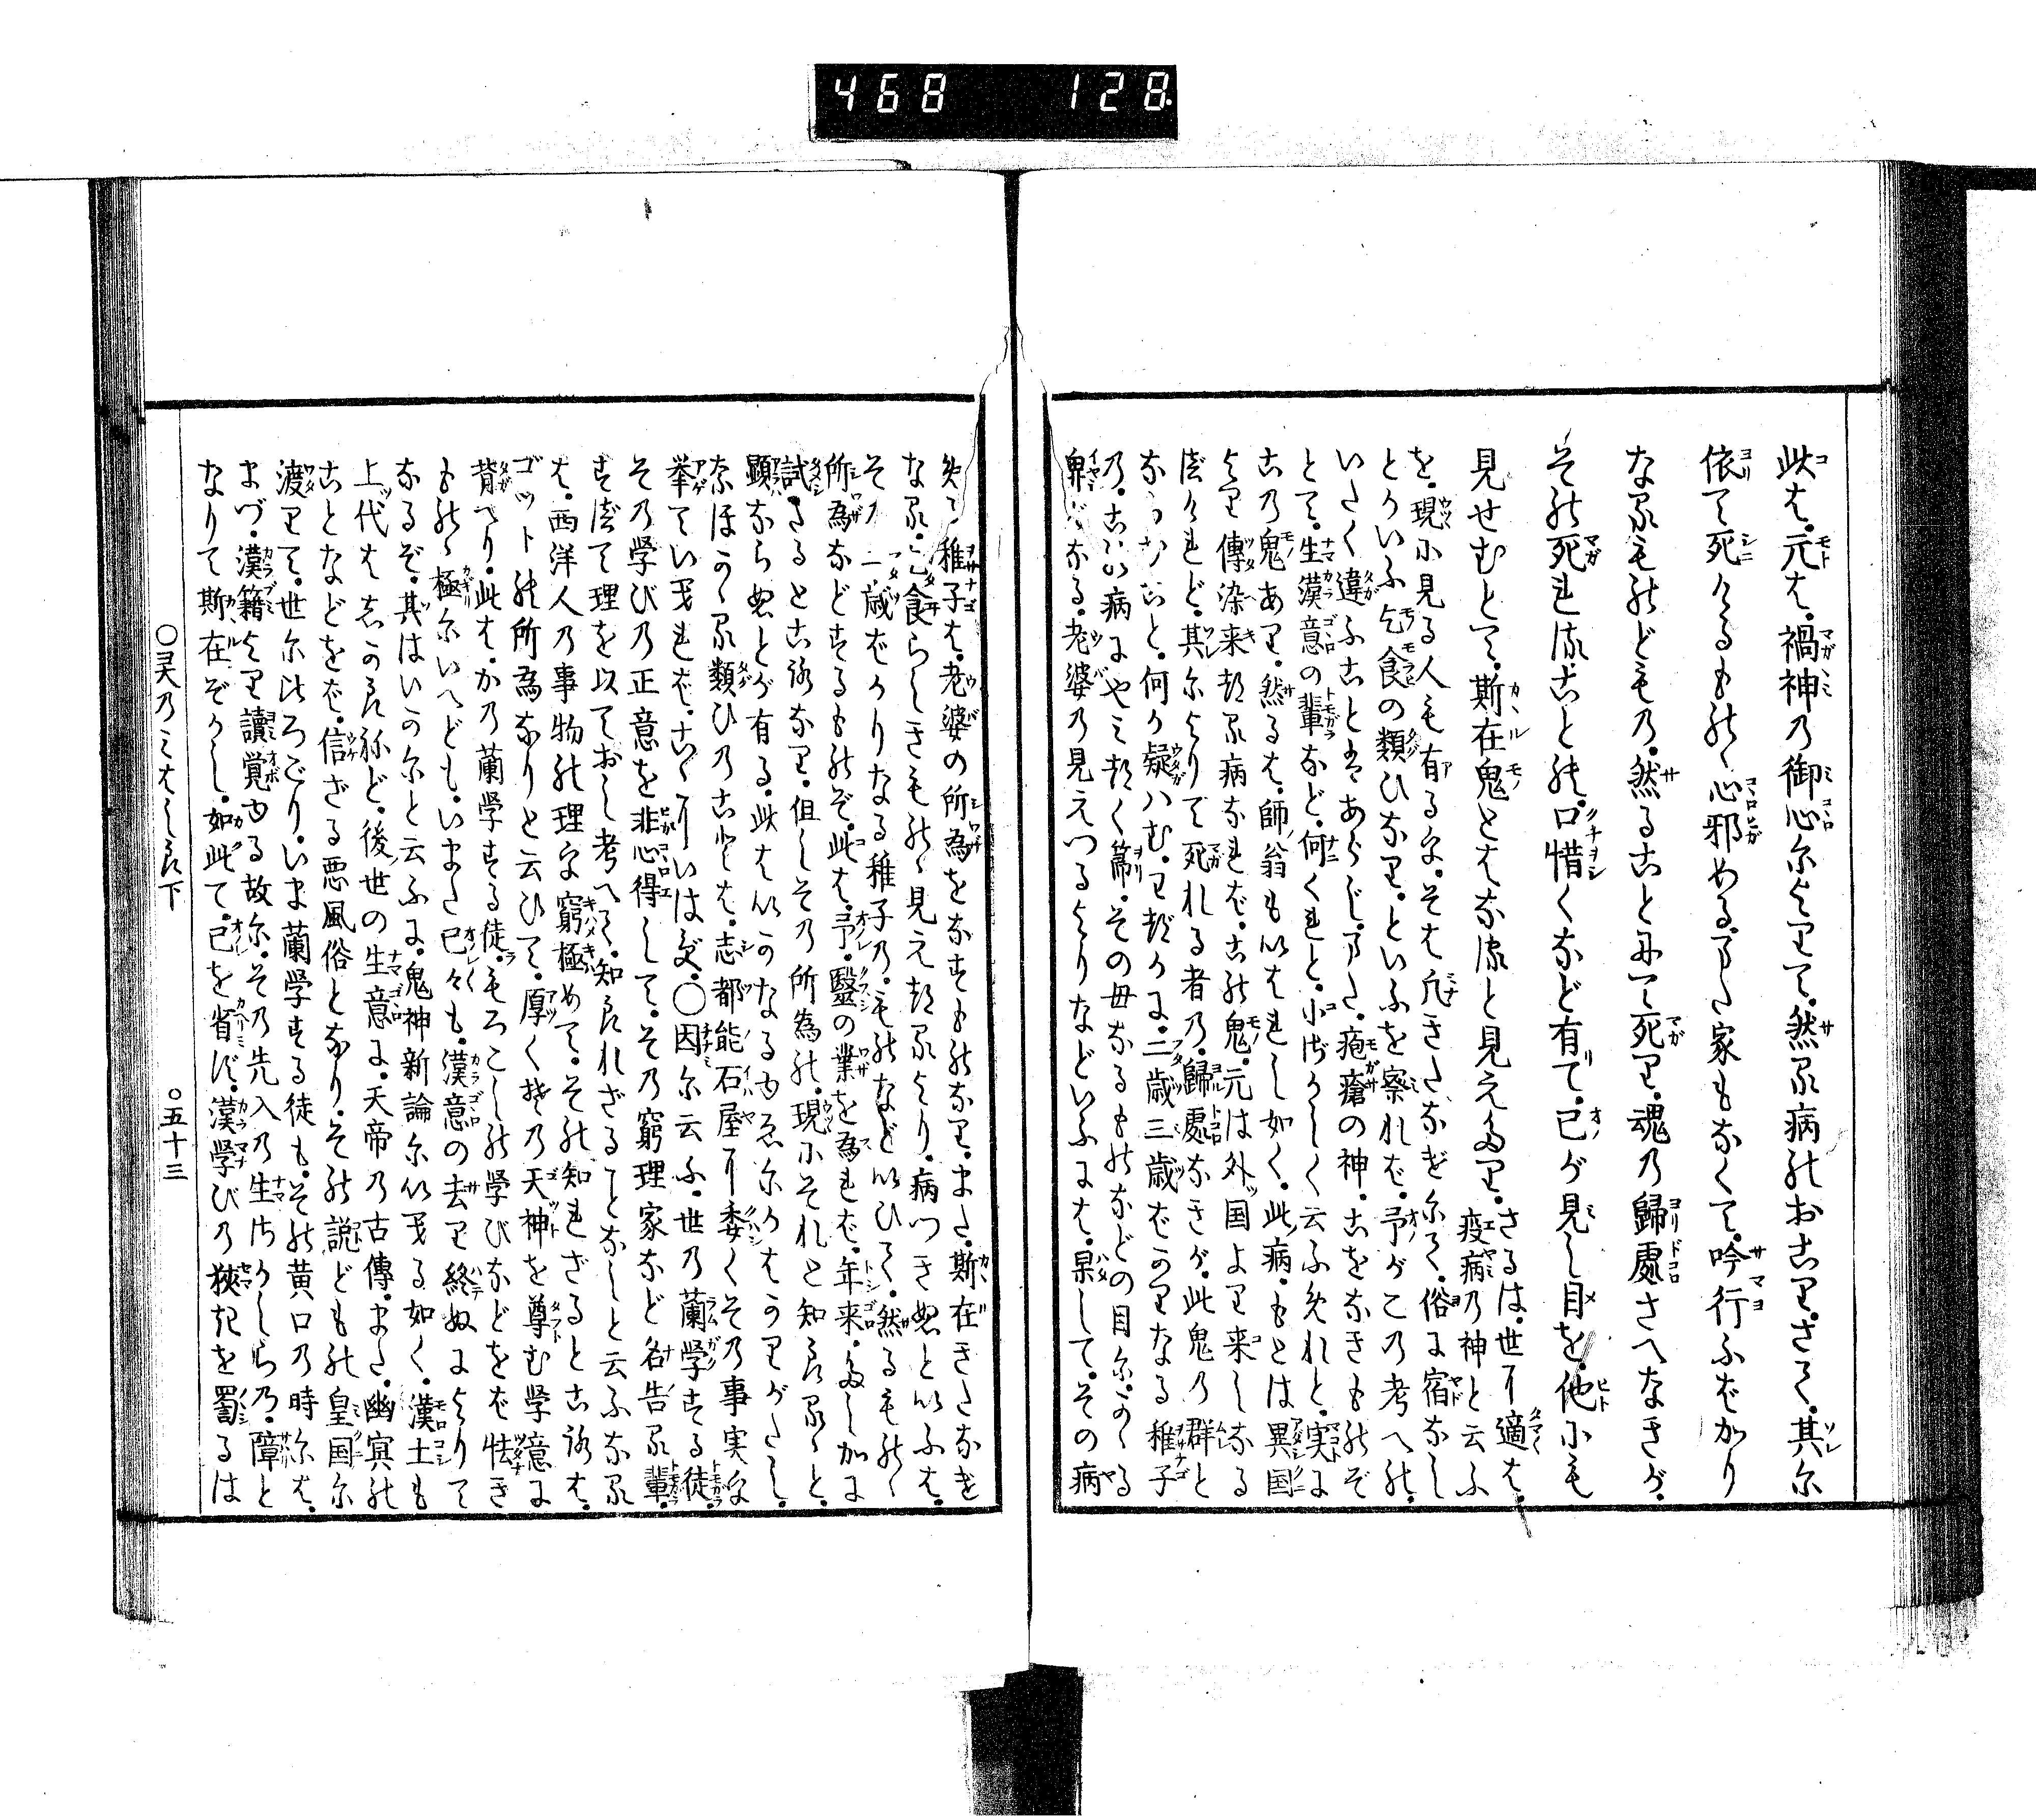 468 128
此は。元は。禍神の御心によりて。然る病のおこり。さて。其に
依て死ぬるもの〻心邪める。また家もなくて。吟行ふばかり
なるものどもの。然ることにて死り。魂の歸處さへなきが。
その死れることの。口惜くなど有て。己が見し目を。他にも
見せむとて。斯在鬼とはなると見えたり。さるは。世に適は。疫病の神と云ふ
を。現に見る人も有るを。そは凡きたなげにて。俗に宿なし
とかいふ乞食の類ひなり。といふを察れば。予がこの考への。
いたく違ふことはあらじ。また。疱瘡の神。こをなきものぞ
とて。生漢意の輩など。何くれと。小ざかしく云ふめれど。実に
この鬼あり。然るは。師翁もいはれし如く。此病。もとは異国
より傳染来たる病なれば。この鬼。元は外国より来しなる
べけれど。其によりて死れる者の。歸處なきが。此鬼の群と
なりなむこと。何か疑はむ。わたかに。二歳三歳ばかりなる稚子
の。こひ病にやみたく篩。その母なるものなどの目に。かゝる
卑げなる。老婆の見えつるよりなどいふには。果して。その病
稚子は。老婆の所為をなすものなり。また。斯在きたなき
乞食らしきもの〻見えたるより。病つきぬといふは。
歳ばかりなる稚子の。ものなどいひて。然るもの〻
所為などするものぞ。此は。予。醫の業を為れば。年来。たしかに
試さるところなり。但しその所為の。現にそれと知らるゝと。
顕ならぬとが有る。此はいかなるゆゑにかはかりがたし。
なほかゝる類ひのことは。志都能石屋に委くその事実を
挙ていひれば。こゝにいはず。○因に云ふ。世の蘭学する徒。
その学びの正意を非心得して。その窮理家など名告る輩。
すべて理を以ておし考へて。知られざることなしと云ふなる
は。西洋人の事物の理を窮極めて。その知れざるところは。
ゴットの所為なりと云ひて。厚くその天神を尊む学意に
背へり。此は。かの蘭学する徒。もろこしの学びなどをば怯き
もの〻極にいへども。いまだ己々も。漢意の去り終ぬによりて
なるぞ。其はいかにと云ふに。鬼神新論にいへる如く。漢土も
上代はしかられど。後世の生意に。天帝の古傳。また。幽冥の
ことなどをば。信ざる悪風俗となり。その説どもの皇国に
渡りて。世にはろごり。いま蘭学する徒も。その黄口の時には。
まづ。漢籍より讀覚ゆる故に。その先入の生さかしらの。障と
なりて斯在ぞかし。如此て。己を省ず。漢学びの狭きを罵るは
○霊乃みはしら下
○五十三